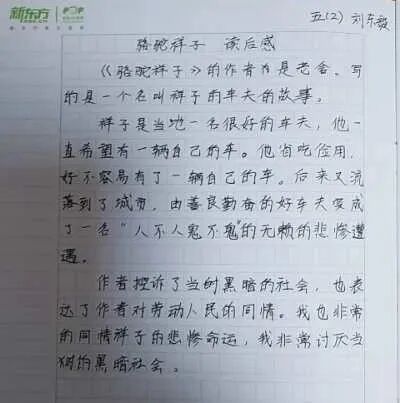 新东方
XDF.CN
五(2) 刘东毅
骆驼祥子 读后感
《骆驼祥子》的作者是老舍。写
的是一个名叫祥子的车夫的故事。
祥子是当地一名很好的车夫,他一
直希望有一辆自己的车。他省吃俭用,
好不容易有了一辆自己的车。后来又流
落到了城旁,由善良勤奋的好车夫变成
了一名"人不人鬼不鬼"的无赖的悲惨遭
遇。
作者控诉了当时黑暗的社会,也表
达了作者对劳动人民的同情。我也非常
的同情祥子的悲惨命运,我非常讨厌当
时的黑暗社会。